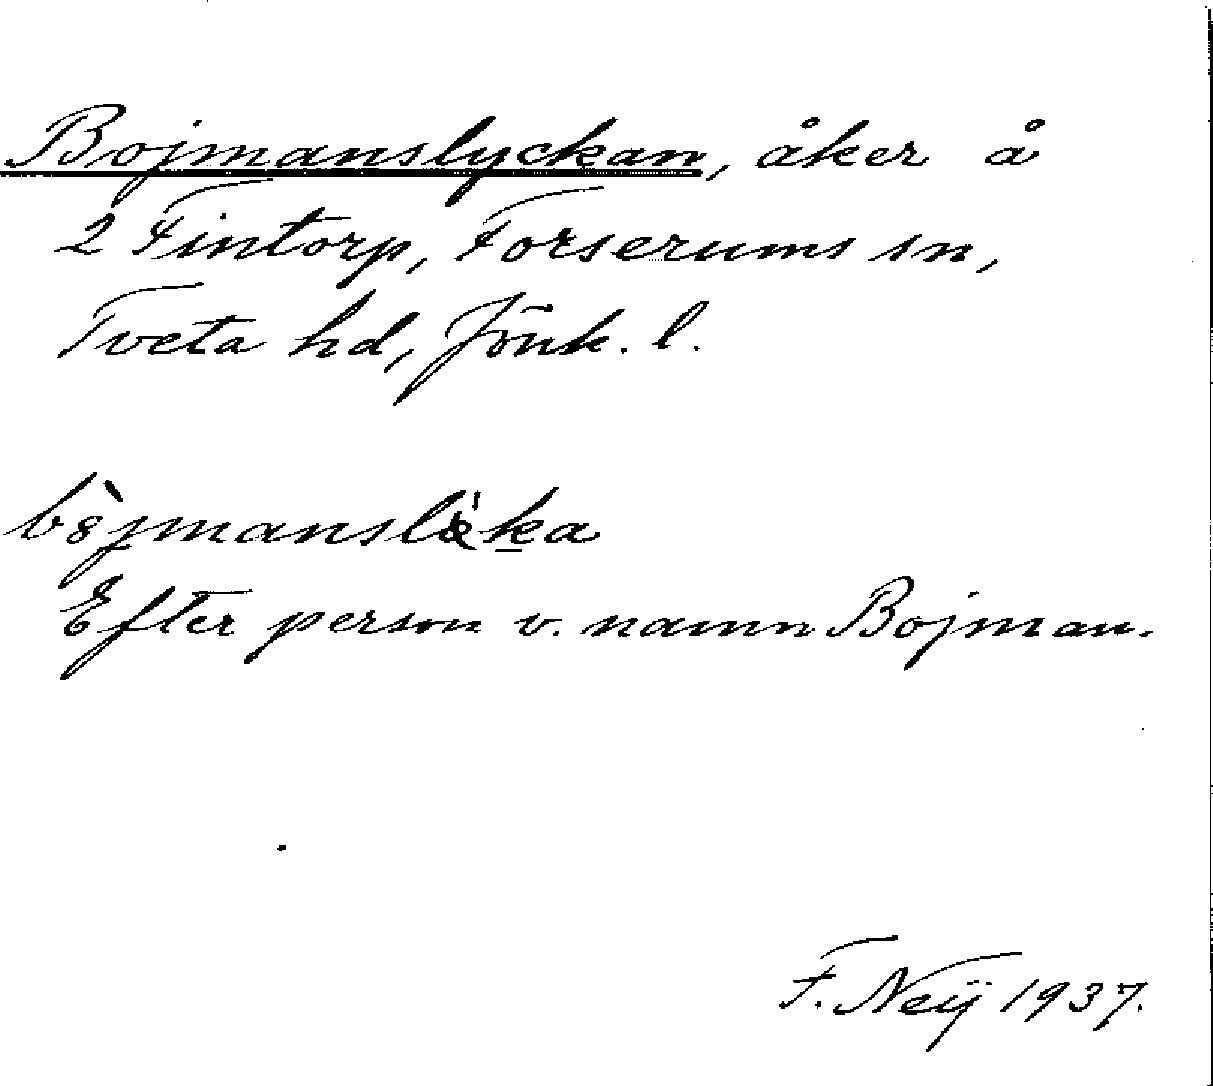 Bojmanslyckan, åker å
2 Fintorp, Forserums sn,
Tveta hd, Jönk. l.
Efter person v. namn Bojman.
F. Neij 1937.